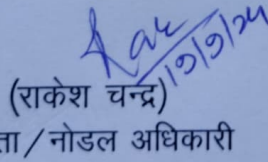 19/9/24
(राकेश चन्द्र)
ता / नोडल अधिकारी